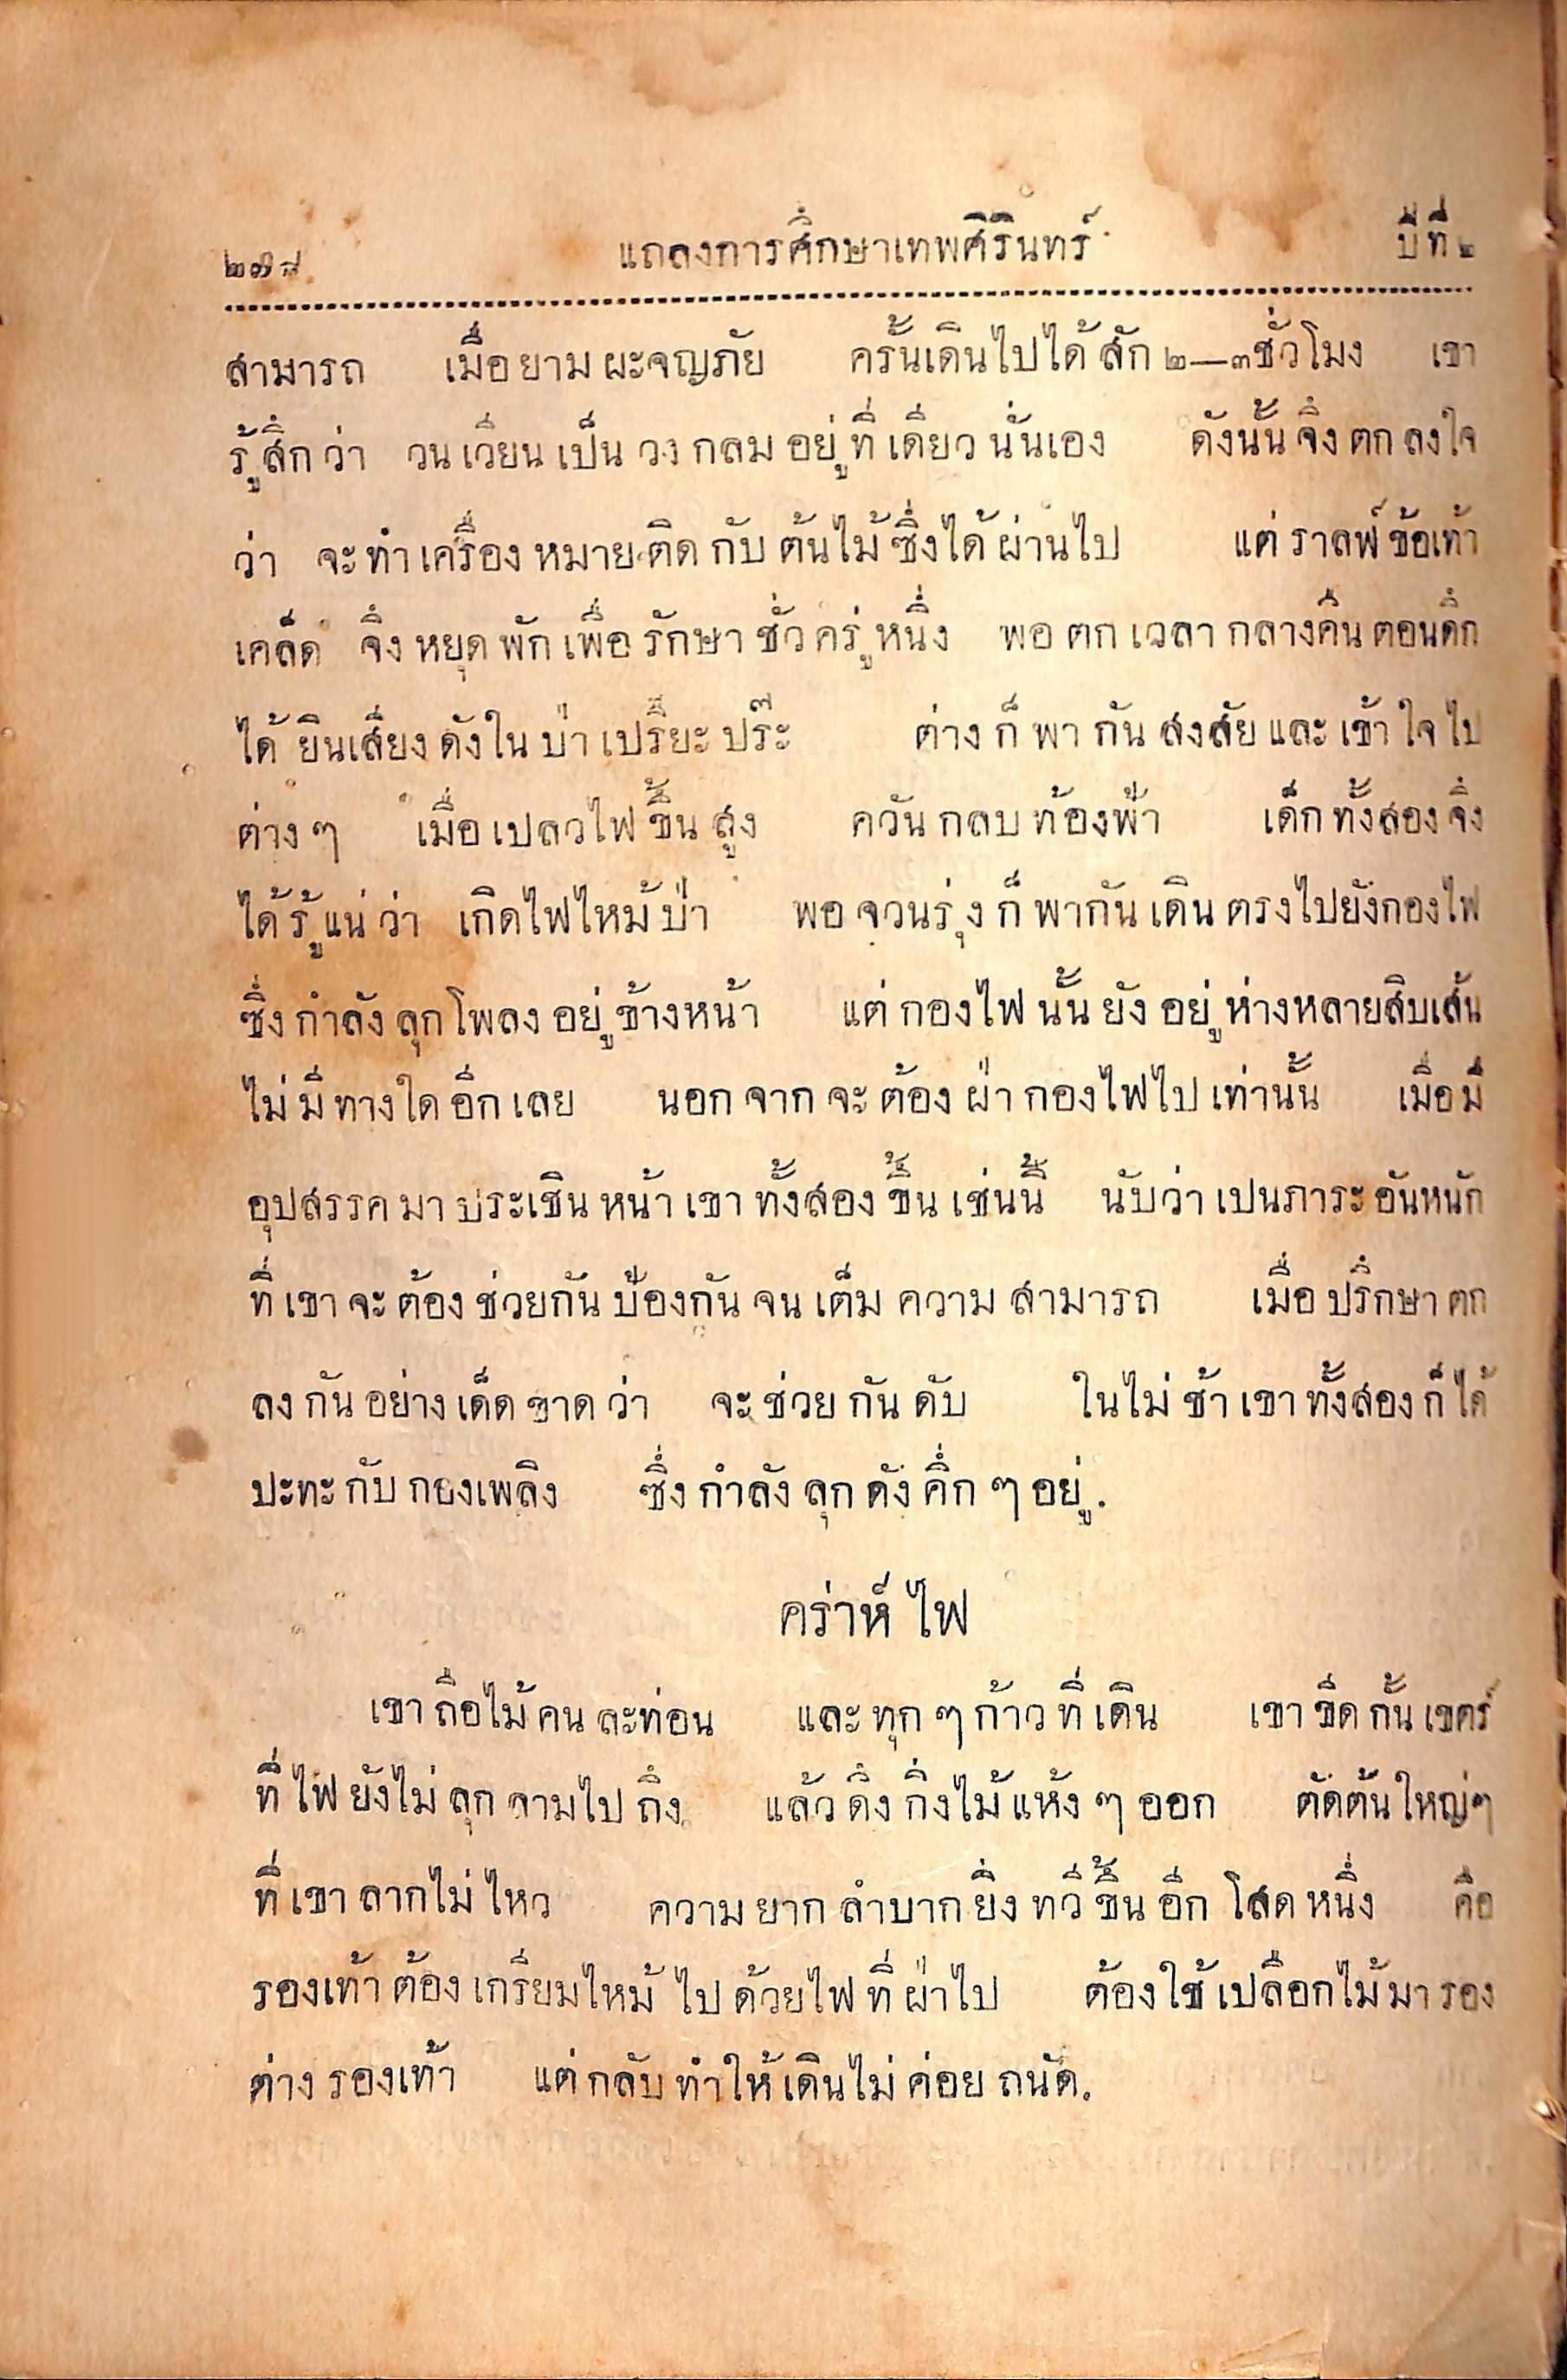 ๒๗๘ แถลงการศึกษาเทพศิรินทร์ ปีที่ ๒
สามารถ เมื่อยามผะจญภัย ครั้นเดินไปได้สัก ๒—๓ ชั่วโมง เขา
รู้สึกว่า วนเวียนเป็นวงกลมอยู่ที่เดียวนั่นเอง ดังนั้นจึงตกลงใจ
ว่า จะทำเครื่องหมายติดกับต้นไม้ซึ่งได้ผ่านไป แต่ราลฟ์ข้อเท้า
เคล็ด จึงหยุดพักเพื่อรักษาชั่วครู่หนึ่ง พอตกเวลากลางคืนตอนดึก
ได้ยินเสียงดังในป่าเปรี๊ยะปร๊ะ ต่างก็พากันสงสัยและเข้าใจไป
ต่างๆ เมื่อเปลวไฟขึ้นสูง ควันกลบท้องฟ้า เด็กทั้งสองจึง
ได้รู้แน่ว่า เกิดไฟไหม้ป่า พอจวนรุ่งก็พากันเดินตรงไปยังกองไฟ
ซึ่งกำลังลุกโพลงอยู่ข้างหน้า แต่กองไฟนั้นยังอยู่ห่างหลายสิบเส้น
ไม่มีทางใดอีกเลย นอกจากจะต้องฝ่ากองไฟไปเท่านั้น เมื่อมี
อุปสรรคมาประเชินหน้าเขาทั้งสองขึ้นเช่นนี้ นับว่าเปนภาระอันหนัก
ที่เขาจะต้องช่วยกันป้องกันจนเต็มความสามารถ เมื่อปรึกษาตก
ลงกันอย่างเด็ดขาดว่า จะช่วยกันดับ ในไม่ช้าเขาทั้งสองก็ได้
ปะทะกับกองเพลิง ซึ่งกำลังลุกดังคึ่กๆอยู่.
คร่าห์ไฟ
เขาถือไม้คนละท่อน และทุกๆก้าวที่เดิน เขาขีดกั้นเขตร์
ที่ไฟยังไม่ลุกลามไปถึง แล้วดึงกิ่งไม้แห้งๆออก ตัดต้นใหญ่ๆ
ที่เขาลากไม่ไหว ความยากลำบากยิ่งทวีขึ้นอีกโสดหนึ่ง คือ
รองเท้าต้องเกรียมไหม้ไปด้วยไฟที่ฝ่าไป ต้องใช้เปลือกไม้มารอง
ต่างรองเท้า แต่กลับทำให้เดินไม่ค่อยถนัด.